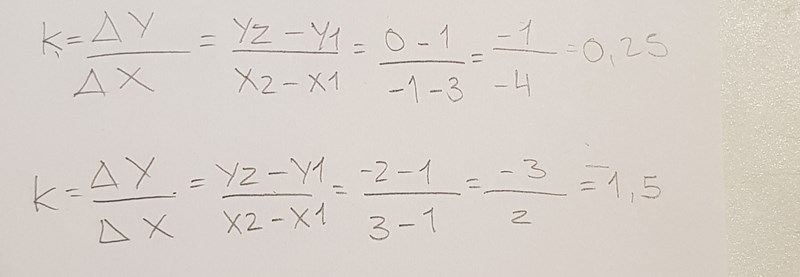 k = ΔY / ΔX = Y2 - Y1 / X2 - X1 = 0 - 1 / -1 - 3 = -1 / -4 = 0,25
k = ΔY / ΔX = Y2 - Y1 / X2 - X1 = -2 - 1 / 3 - 1 = -3 / 2 = -1,5